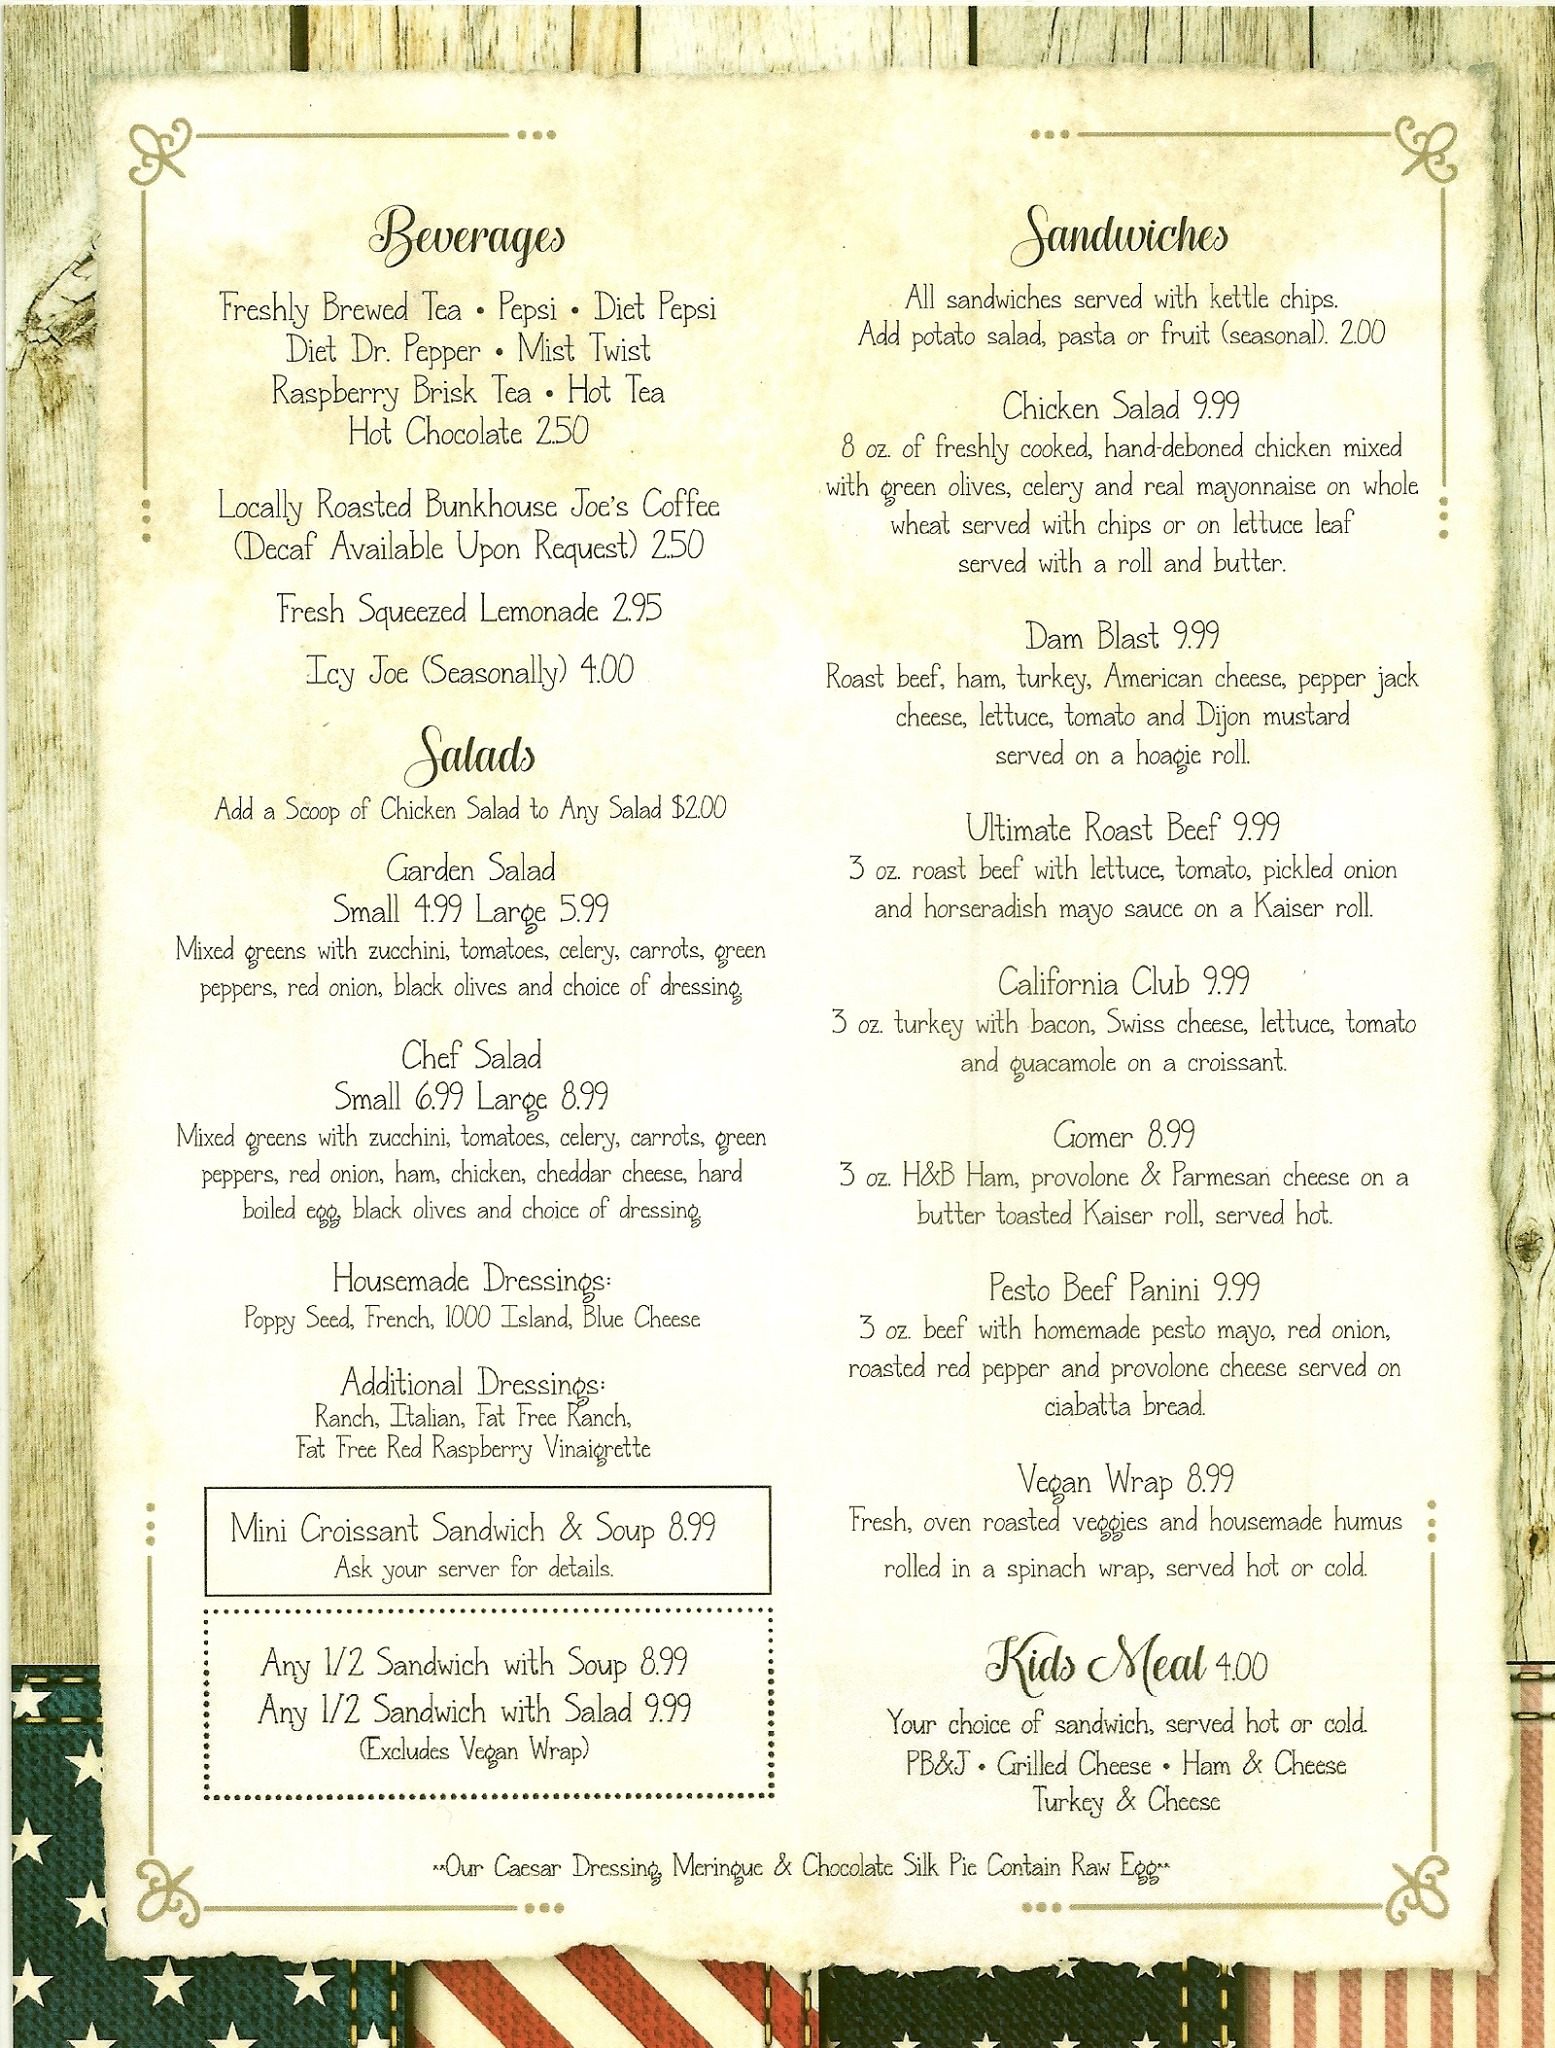 Beverages
Freshly Brewed Tea • Pepsi • Diet Pepsi
Diet Dr. Pepper • Mist Twist
Raspberry Brisk Tea • Hot Tea
Hot Chocolate 2.50
Locally Roasted Bunkhouse Joe's Coffee
(Decaf Available Upon Request) 2.50
Fresh Squeezed Lemonade 2.95
Icy Joe (Seasonally) 4.00
Salads
Add a Scoop of Chicken Salad to Any Salad $2.00
Garden Salad
Small 4.99 Large 5.99
Mixed greens with zucchini, tomatoes, celery, carrots, green
peppers, red onion, black olives and choice of dressing.
Chef Salad
Small 6.99 Large 8.99
Mixed greens with zucchini, tomatoes, celery, carrots, green
peppers, red onion, ham, chicken, cheddar cheese, hard
boiled egg, black olives and choice of dressing.
Housemade Dressings:
Poppy Seed, French, 1000 Island, Blue Cheese
Additional Dressings:
Ranch, Italian, Fat Free Ranch,
Fat Free Red Raspberry Vinaigrette
Mini Croissant Sandwich & Soup 8.99
Ask your server for details.
Any 1/2 Sandwich with Soup 8.99
Any 1/2 Sandwich with Salad 9.99
(Excludes Vegan Wrap)
Sandwiches
All sandwiches served with kettle chips.
Add potato salad, pasta or fruit (seasonal). 2.00
Chicken Salad 9.99
8 oz. of freshly cooked, hand-deboned chicken mixed
with green olives, celery and real mayonnaise on whole
wheat served with chips or on lettuce leaf
served with a roll and butter.
Dam Blast 9.99
Roast beef, ham, turkey, American cheese, pepper jack
cheese, lettuce, tomato and Dijon mustard
served on a hoagie roll.
Ultimate Roast Beef 9.99
3 oz. roast beef with lettuce, tomato, pickled onion
and horseradish mayo sauce on a Kaiser roll.
California Club 9.99
3 oz. turkey with bacon, Swiss cheese, lettuce, tomato
and guacamole on a croissant.
Gomer 8.99
3 oz. H&B Ham, provolone & Parmesan cheese on a
butter toasted Kaiser roll, served hot.
Pesto Beef Panini 9.99
3 oz. beef with homemade pesto mayo, red onion,
roasted red pepper and provolone cheese served on
ciabatta bread.
Vegan Wrap 8.99
Fresh, oven roasted veggies and housemade humus
rolled in a spinach wrap, served hot or cold.
Kids Meal 4.00
Your choice of sandwich, served hot or cold.
PB&J • Grilled Cheese • Ham & Cheese
Turkey & Cheese
**Our Caesar Dressing, Meringue & Chocolate Silk Pie Contain Raw Egg**